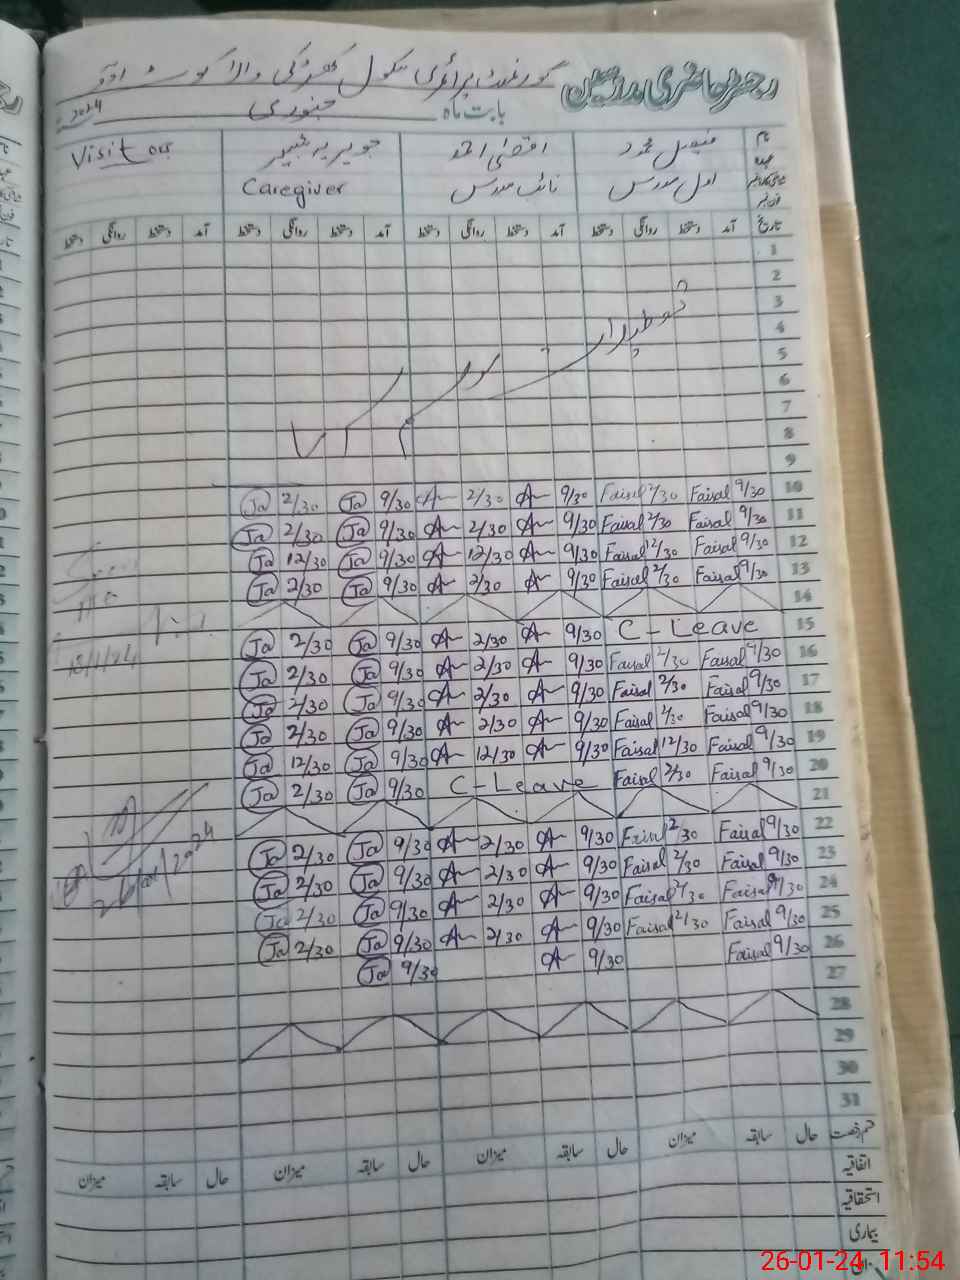 رجسٹر حاضری مدرسین گورنمنٹ پرائمری سکول کھڑکی والا کوٹ ادو
بابت ماہ جنوری 2024
نام فیصل محمود اقصیٰ احمد جویریہ شبیر Visit
عہدہ اول مدرس نائب مدرس Caregiver
تاریخ آمد دستخط روانگی دستخط آمد دستخط روانگی دستخط آمد دستخط روانگی دستخط آمد دستخط روانگی دستخط
1
2
3
4
5
6
7
8
9
10 9/30 Faisal 2/30 Faisal 9/30 A 2/30 A 9/30 Ja 2/30 Ja
11 9/30 Faisal 2/30 Faisal 9/30 A 2/30 A 9/30 Ja 2/30 Ja
12 9/30 Faisal 12/30 Faisal 9/30 A 12/30 A 9/30 Ja 12/30 Ja
13 9/30 Faisal 2/30 Faisal 9/30 A 2/30 A 9/30 Ja 2/30 Ja
14
15 C-Leave 9/30 A 2/30 A 9/30 Ja 2/30 Ja
16 9/30 Faisal 2/30 Faisal 9/30 A 2/30 A 9/30 Ja 2/30 Ja
17 9/30 Faisal 2/30 Faisal 9/30 A 2/30 A 9/30 Ja 2/30 Ja
18 9/30 Faisal 2/30 Faisal 9/30 A 2/30 A 9/30 Ja 2/30 Ja
19 9/30 Faisal 12/30 Faisal 9/30 A 12/30 A 9/30 Ja 12/30 Ja
20 9/30 Faisal 2/30 Faisal C-Leave 9/30 Ja 2/30 Ja
21
22 9/30 Faisal 2/30 Faisal 9/30 A 2/30 A 9/30 Ja 2/30 Ja
23 9/30 Faisal 2/30 Faisal 9/30 A 2/30 A 9/30 Ja 2/30 Ja
24 9/30 Faisal 2/30 Faisal 9/30 A 2/30 A 9/30 Ja 2/30 Ja
25 9/30 Faisal 2/30 Faisal 9/30 A 2/30 A 9/30 Ja 2/30 Ja
26 9/30 Faisal 9/30 A 9/30 Ja
27
28
29
30
31
قسم رخصت حال سابقہ میزان حال سابقہ میزان حال سابقہ میزان حال سابقہ میزان
اتفاقیہ
استحقاقیہ
بیماری
26-01-24 11:54